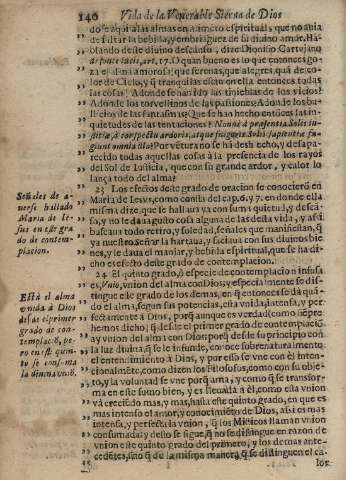 140 Vida de la Venerable Sierva de Dios
do se aqui a las almas en aumẽto espiritual, que no avia
de faltar la bebida, y embriaguez de su divino amor. Ha-
blando deste divino descanso, dize Dionisio Cartujano
O quan bueno es lo que entonces go-
za el alma amorosa! que serenas, que alegres, quã de co-
lor de Cielo, y q̃ tranquilas estàn en ella entonces todas
las cosas! Adonde se han ido las tinieblas de los vicios!
Adonde los torvellinos de las passiones! Adonde los bu-
llicios de las fantasmas! Que se han hecho entonces las in-
quietudes de las tentaciones!
giunt omnia illa! Por vẽtura no se ha deshecho, y desapa-
recido todas aquellas cosas à la presencia de los rayos
del Sol de Iusticia, que con su grande ardor, y calor lo
lança todo del alma?
Señales de a-
verse hallado
Maria de Ie-
sus en este gra
do de contem-
placion.
23 Los efectos deste grado de oracion se conocierõ en
Maria de Iesvs, como consta del cap. 6, y 7. en donde ella
misma dize, que se hallava ya con suma quietud, y dese-
ansa, y no le dava gusto cosa alguna de las desta vida, y assi
buscava todo retiro, y soledad, señales que manifiestan, q̃
ya nuestro Señor la hartava, y saciava con sus divinos bie-
nes, y le dava el manjar, y bebida espiritual, que se ha di-
cho es efecto deste grado de contemplacion.
Està el alma
vnida à Dios
desde el primer
grado de con-
templaciõ, pe-
ro en este quin-
to se consuma
la divina vniõ.
24 El quinto grado, ò especie de contemplacion infusa
es, Vnio, vnion del alma con Dios; y especialmente se dis-
tingue este grado de los demas, en q̃ interiormẽte se dà to-
do el alma, segun sus potencias, està vnida, intensa, y per-
fectamente à Dios, porq̃ aunque es verdad (como sẽpre
hemos dicho) q̃ desde el primer grado de contemplaciõ
ay vnion del alma con Dios; porq̃ desde su principio con
la luz divina, q̃ se le infunde, conoce sobrenaturalmente
el entendimiento à Dios, y por esso se vne con èl inten-
cionalmẽte, como dizen los Filosofos, como con su obje-
to, y la voluntad se vne porq̃ ama, y como q̃ se transfor-
ma en este sumo bien, y es llevada à èl; como esta vnion
và creciẽdo mas, y mas, hasta este quinto grado, en que es
mas intenso el amor, y conocimiẽto de Dios, assi es mas
intensa, y perfecta la vnion, q̃ los Misticos llaman vnion
consumada; y desto se sigue, q̃ no se distingue en razon de
vnion este quinto grado del primero, y los demas ante-
cedẽtes, sino q̃ de la misma manera, q̃ se distinguen el ca-
lor